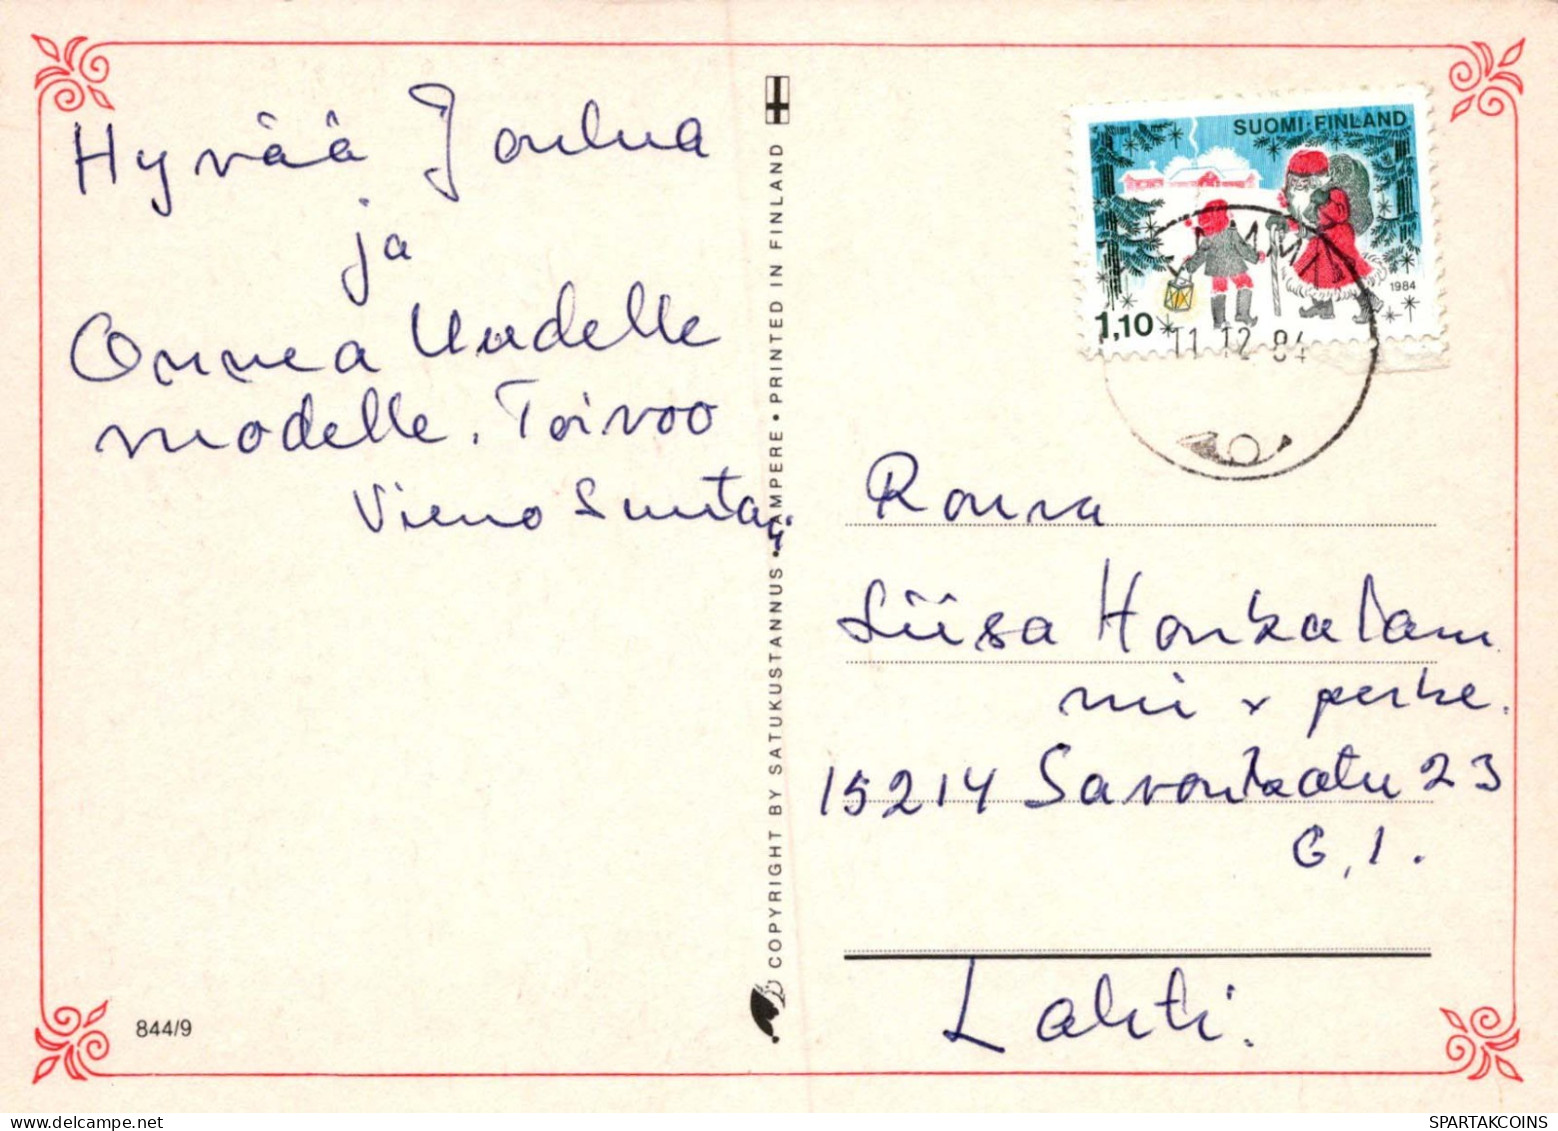 Hyvää Joulua
ja
Onnea Uudelle
modelle. Toivoo
Vieno Suntaj
844/9
© COPYRIGHT BY SATUKUSTANNUS • TAMPERE • PRINTED IN FINLAND
SUOMI·FINLAND
1984
1,10
11.12.84
Rouva
Liisa Honkalam
mi x perhe.
15214 Savonkatu 23
G, 1.
Lahti.
SPARTAKCOINS